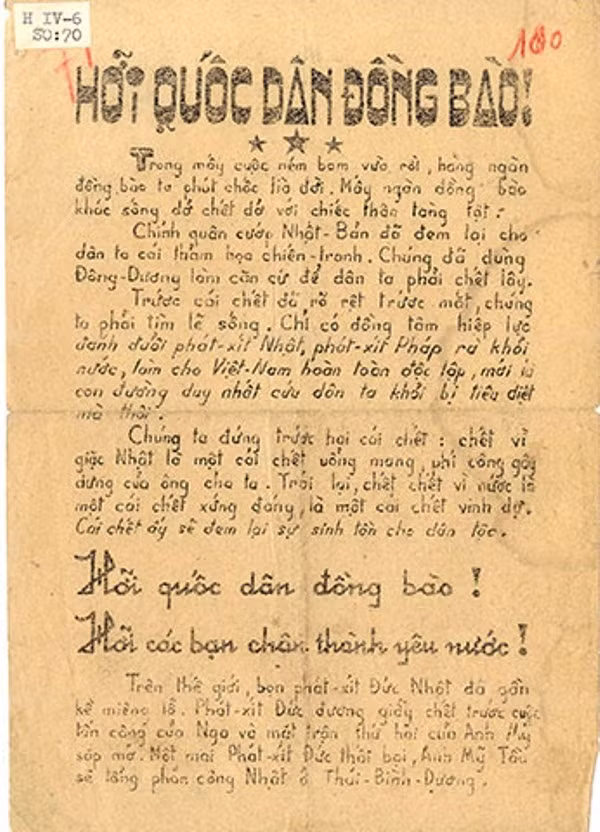 H IV-6
SỐ:70
100
HỠI QUỐC DÂN ĐỒNG BÀO!
Trong mấy cuộc ném bom vừa rồi, hàng ngàn
đồng bào ta phút chốc lìa đời. Mấy ngàn đồng bào
khác sống dở chết dở với chiếc thân tàng tật.
Chính quân cướp Nhật-Bản đã đem lại cho
dân ta cái thảm họa chiến-tranh. Chúng đã dùng
Đông-Dương làm căn cứ để dân ta phải chết lây.
Trước cái chết đã rõ rệt trước mắt, chúng
ta phải tìm lẽ sống. Chỉ có đồng tâm hiệp lực
đánh đuổi phát-xít Nhật, phát-xít Pháp ra khỏi
nước, làm cho Việt-Nam hoàn toàn độc lập, mới là
con đường duy nhất cứu dân ta khỏi bị tiêu diệt
mà thôi.
Chúng ta đứng trước hai cái chết: chết vì
giặc Nhật là một cái chết uổng mạng, phí công gây
dựng của ông cha ta. Trái lại, chết chết vì nước là
một cái chết xứng đáng, là một cái chết vinh dự.
Cái chết ấy sẽ đem lại sự sinh tồn cho dân tộc.
Hỡi quốc dân đồng bào!
Hỡi các bạn chân thành yêu nước!
Trên thế giới, bọn phát-xít Đức Nhật đã gần
kề miệng lỗ. Phát-xít Đức đương giẫy chết trước cuộc
tấn công của Nga và mặt trận thứ hai của Anh Mỹ
sắp mở. Một mai Phát-xít Đức thất bại, Anh Mỹ Tầu
sẽ tổng phản công Nhật ở Thái-Bình-Dương.